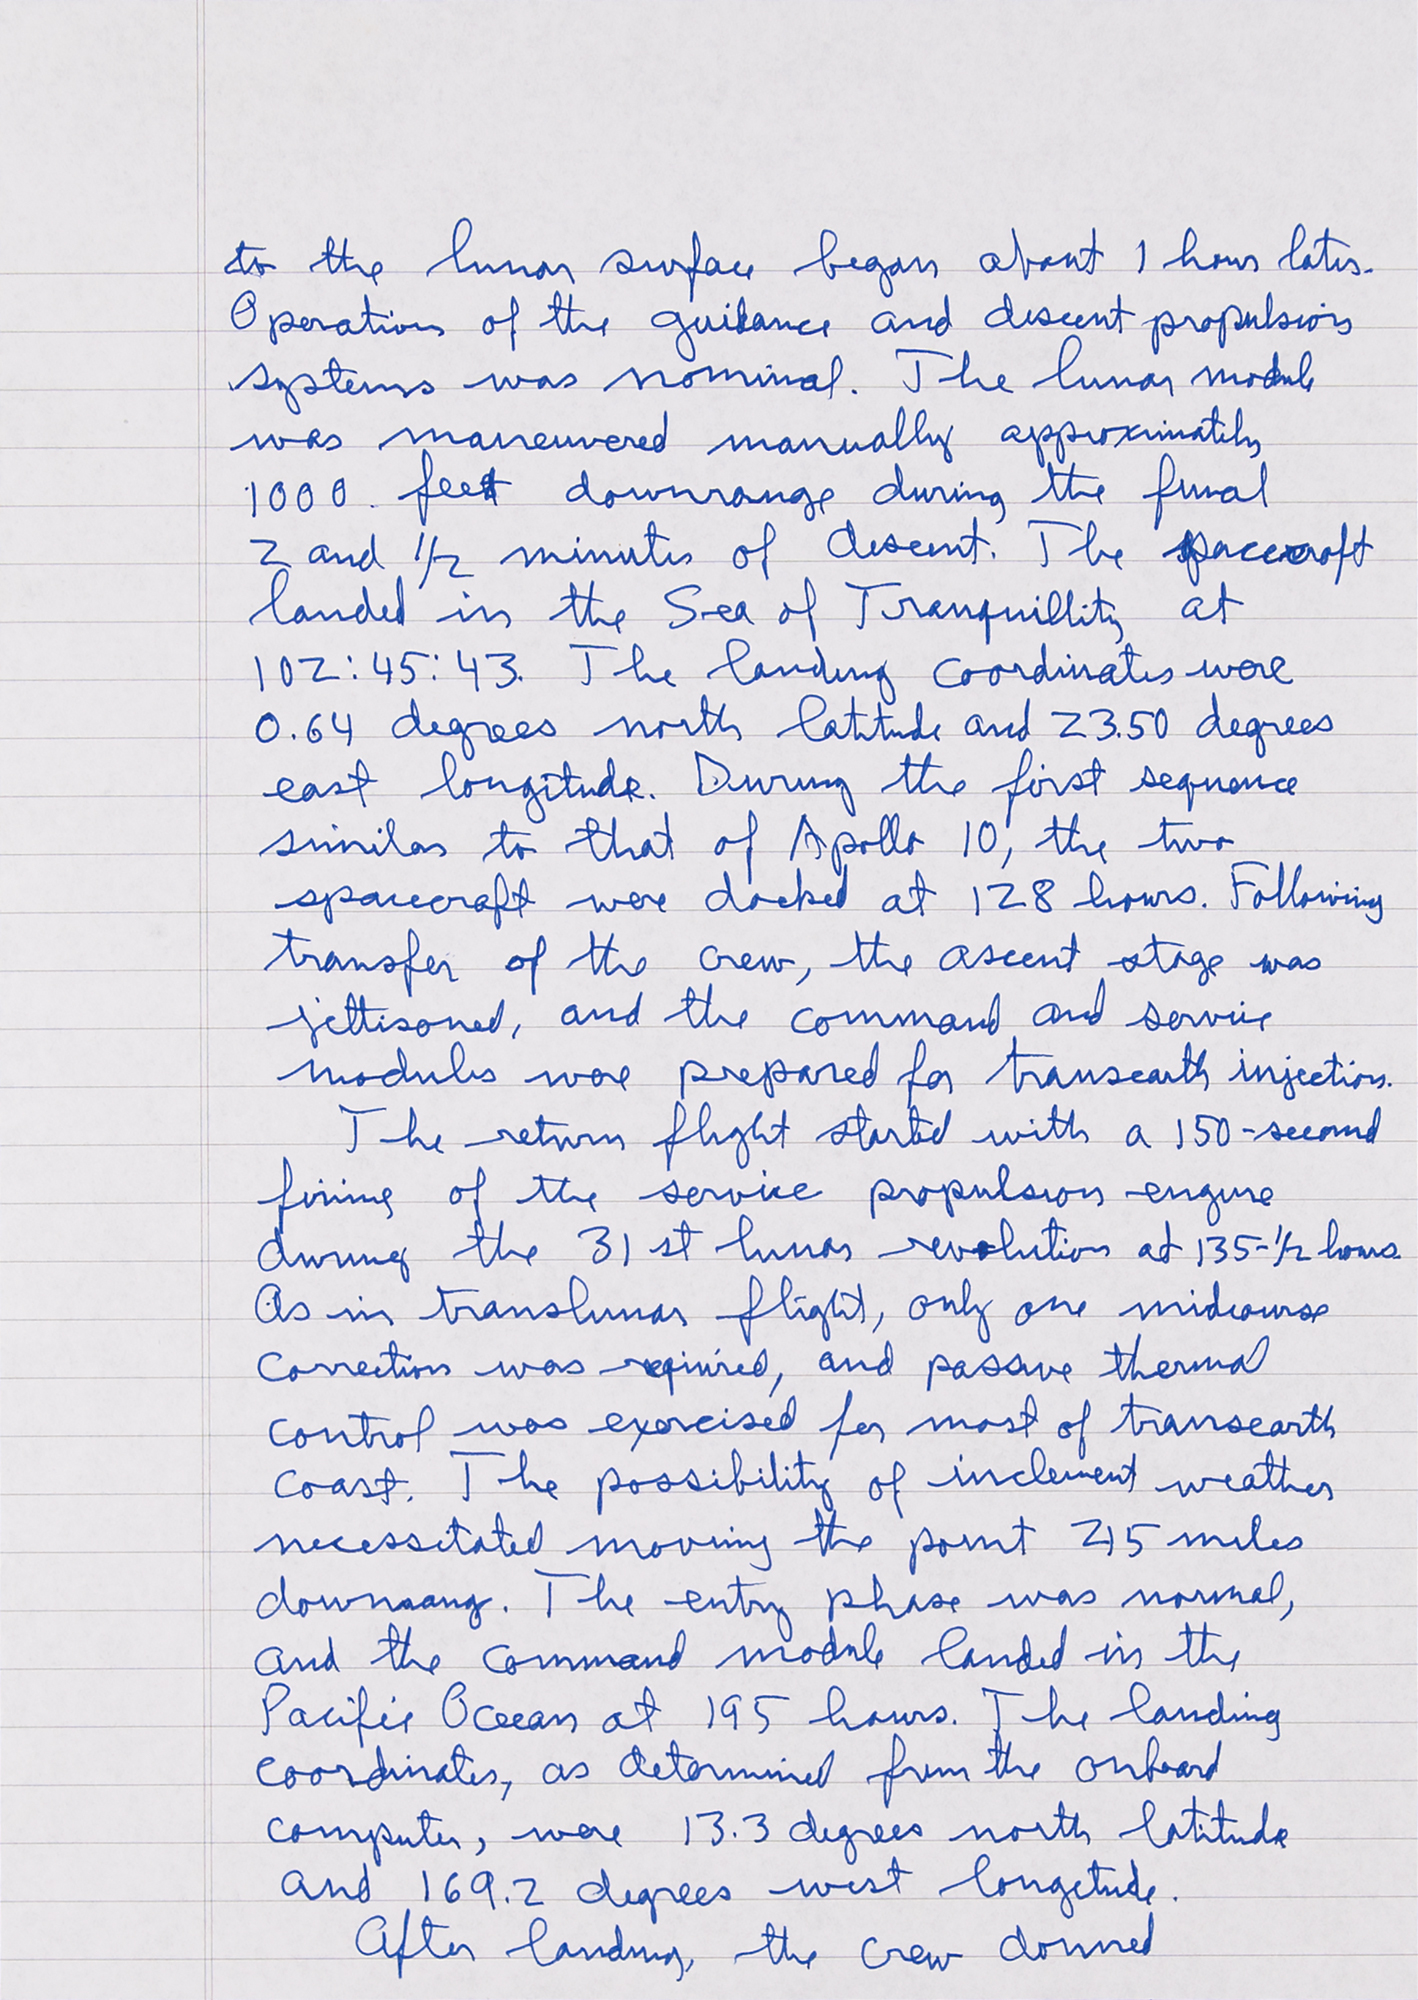 to the lunar surface began about 1 hour later.
Operation of the guidance and descent propulsion
systems was nominal. The lunar module
was maneuvered manually approximately
1000 feet downrange during the final
2 and 1/2 minutes of descent. The spacecraft
landed in the Sea of Tranquillity at
102:45:43. The landing coordinates were
0.64 degrees north latitude and 23.50 degrees
east longitude. During the first sequence
similar to that of Apollo 10, the two
spacecraft were docked at 128 hours. Following
transfer of the crew, the ascent stage was
jettisoned, and the command and service
modules were prepared for transearth injection.
The return flight started with a 150-second
firing of the service propulsion engine
during the 31st lunar revolution at 135-1/2 hours.
As in translunar flight, only one midcourse
correction was required, and passive thermal
control was exercised for most of transearth
coast. The possibility of inclement weather
necessitated moving the point 215 miles
downrang. The entry phase was normal,
and the command module landed in the
Pacific Ocean at 195 hours. The landing
coordinates, as determined from the onboard
computer, were 13.3 degrees north latitude
and 169.2 degrees west longitude.
After landing, the crew donned